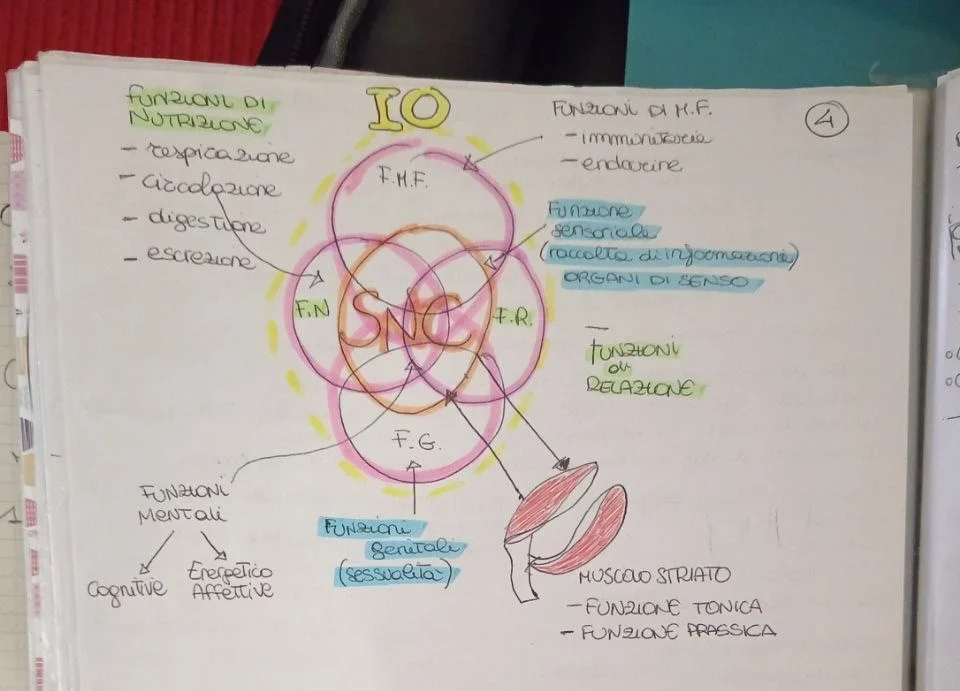 IO
FUNZIONI DI
NUTRIZIONE
- respirazione
- circolazione
- digestione
- escrezione
FUNZIONI DI M.F.
- immunitorie
- endocrine
4
F.M.F.
Funzione
sensoriale
(raccolta di informazione)
ORGANI DI SENSO
F.N
SNC
F.R.
FUNZIONI
di
RELAZIONE
F.G.
FUNZIONI
MENTALI
Cognitive
Energetico
Affettive
FUNZIONI
genitali
(sessualità)
MUSCOLO STRIATO
- FUNZIONE TONICA
- FUNZIONE PRASSICA